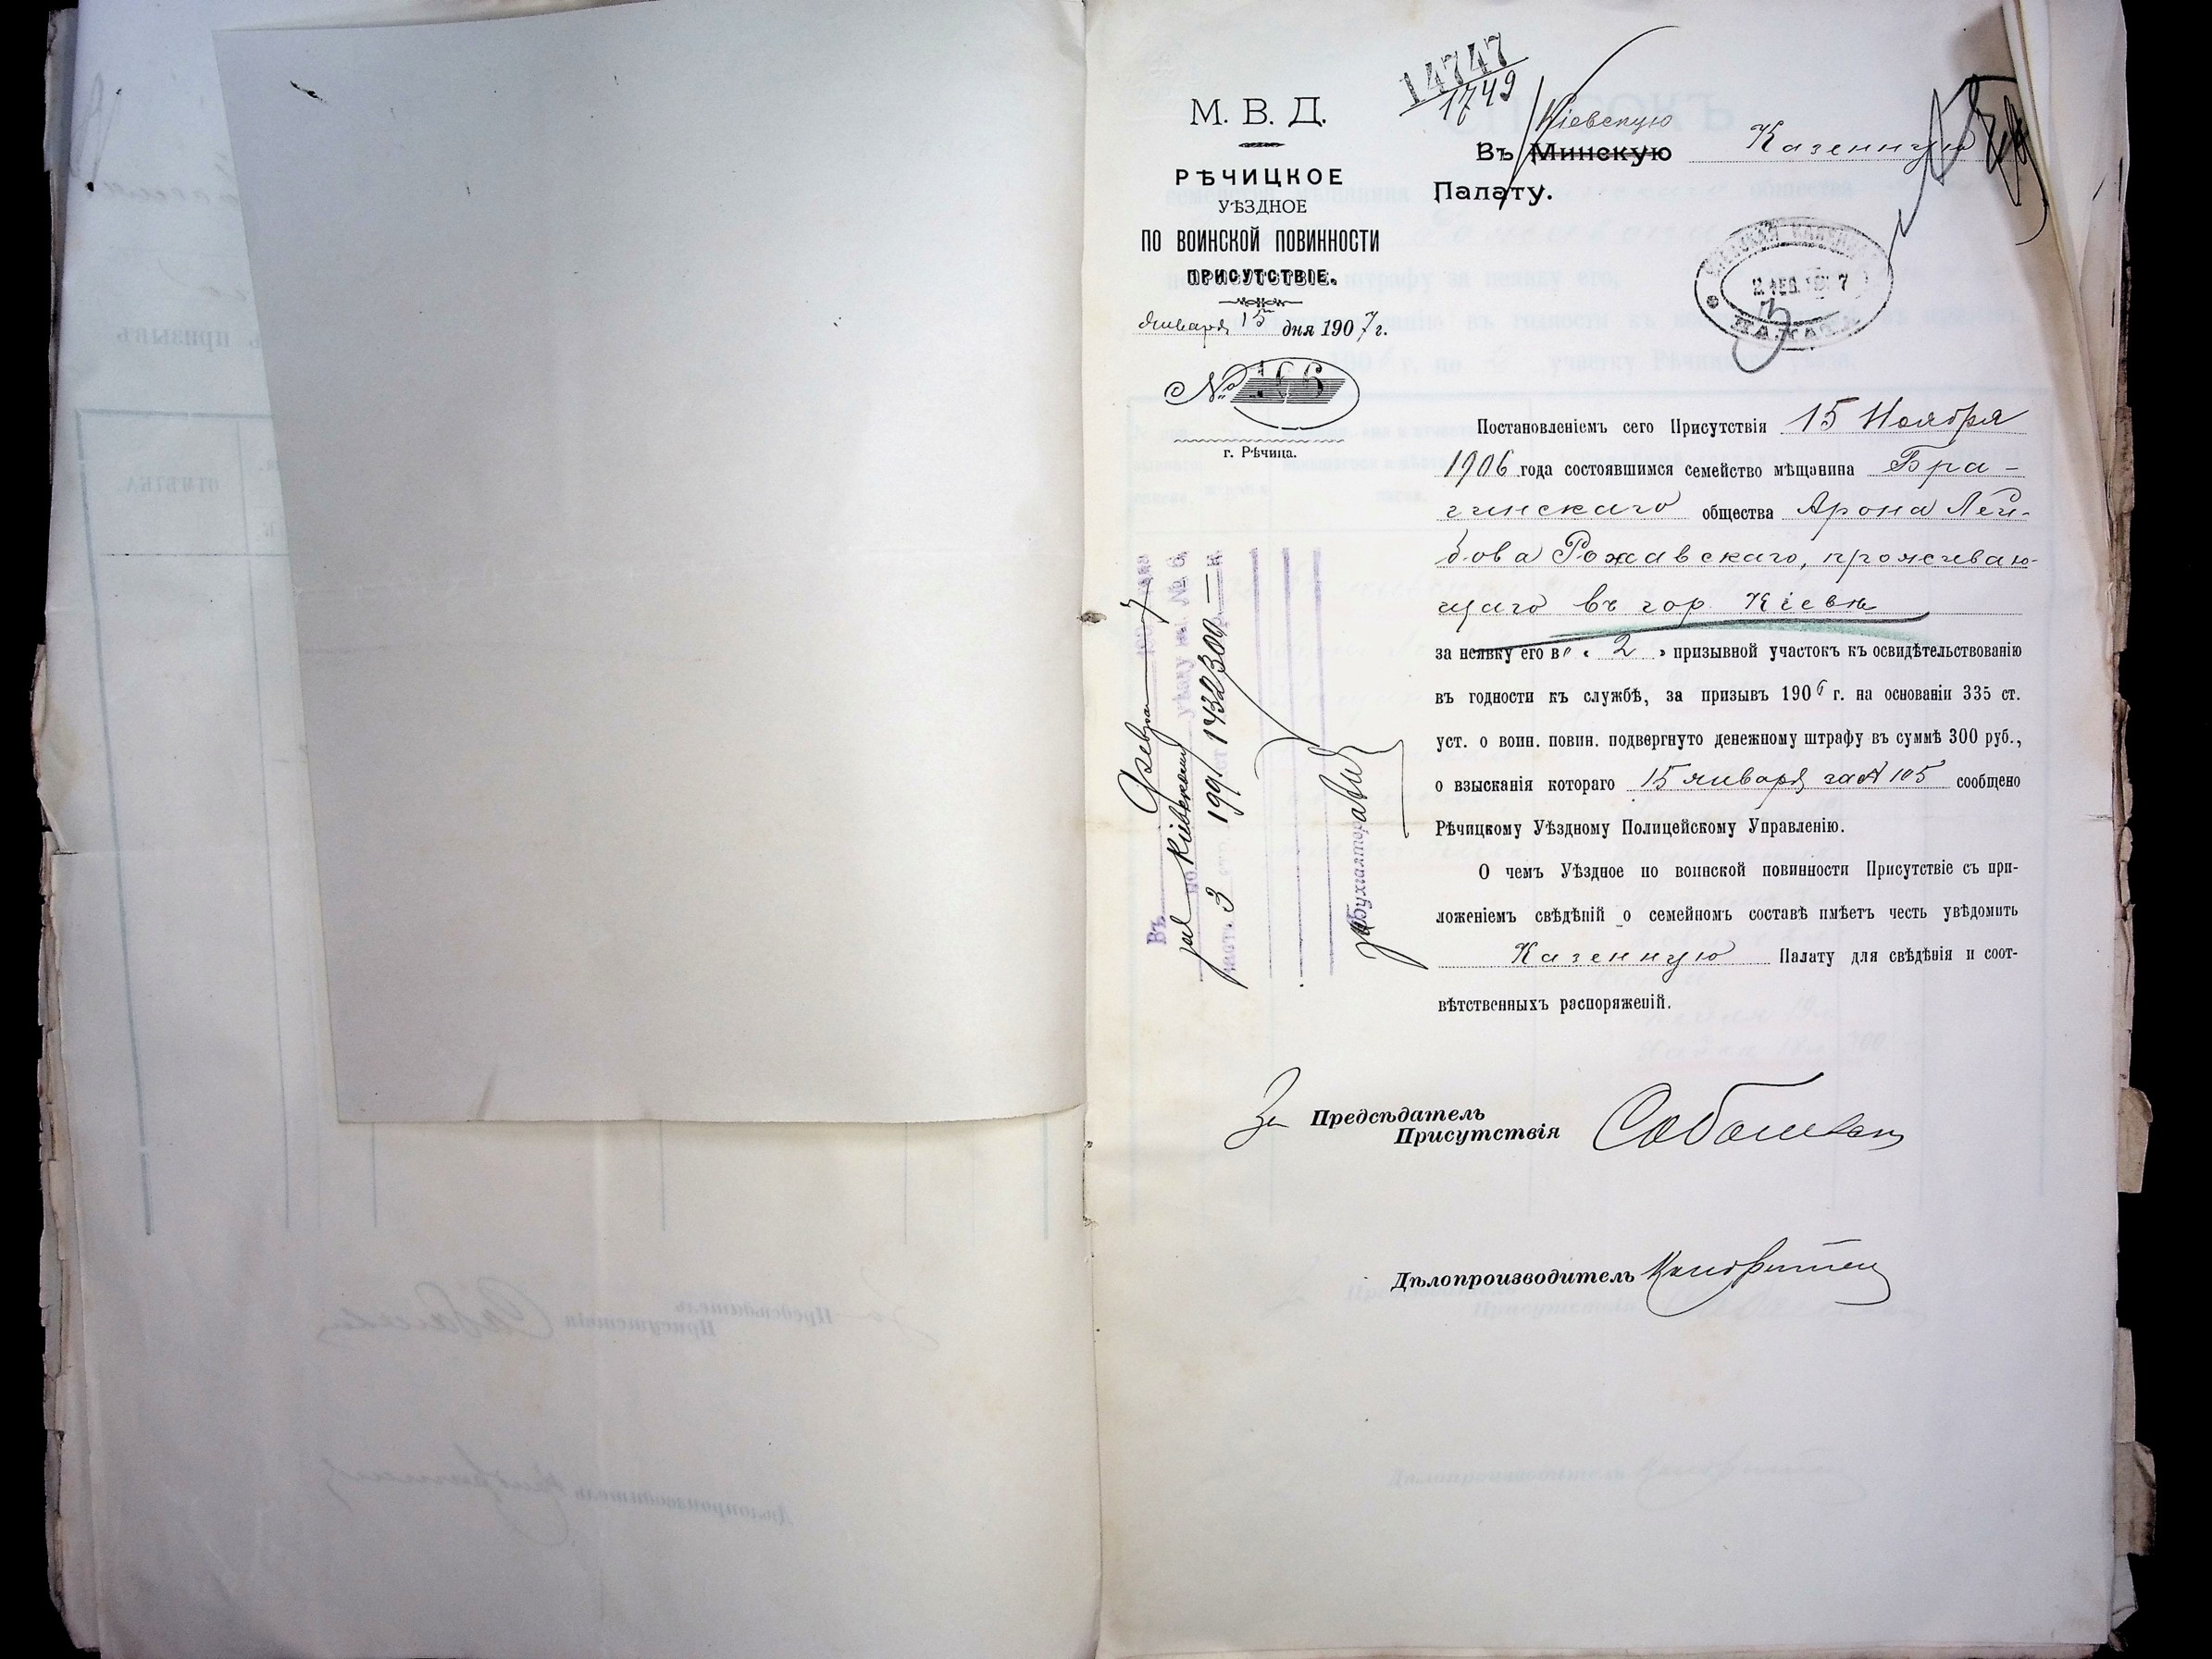 14747
1749
М. В. Д.
РѢЧИЦКОЕ
УѢЗДНОЕ
ПО ВОИНСКОЙ ПОВИННОСТИ
ПРИСУТСТВІЕ.
Января 15 дня 1907 г.
№ 106
г. Рѣчица.
Кіевскую
Въ Минскую Казенную
Палату.
КІЕВСКАЯ КАЗЕННАЯ
2 ФЕВ. 1907
ПАЛАТА
Постановленіемъ сего Присутствія 15 Ноября
1906 года состоявшимся семейство мѣщанина Бра-
гинскаго общества Арона Лей-
бова Рожавскаго, проживаю-
щаго въ гор. Кіевѣ
за неявку его въ « 2 » призывной участокъ къ освидѣтельствованію
въ годности къ службѣ, за призывъ 1906 г. на основаніи 335 ст.
уст. о воин. повин. подвергнуто денежному штрафу въ суммѣ 300 руб.,
о взысканія котораго 15 января за № 105 сообщено
Рѣчицкому Уѣздному Полицейскому Управленію.
О чемъ Уѣздное по воинской повинности Присутствіе съ при-
ложеніемъ свѣдѣній о семейномъ составѣ имѣетъ честь увѣдомить
Казенную Палату для свѣдѣнія и соот-
вѣтственныхъ распоряженій.
Въ Феврал 1907 года
по Кіевскому уѣзду кн. № 6,
3 199 1732 300 — к.
Бухгалтеръ
За Предсѣдатель
Присутствія
Дѣлопроизводитель